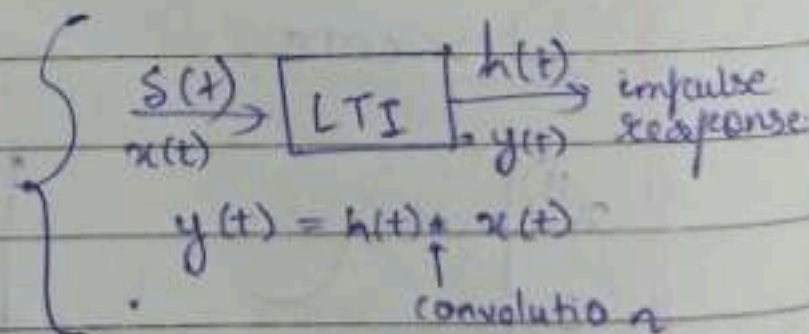 δ(t) LTI h(t) impulse
x(t) y(t) response
y(t) = h(t) * x(t)
convolution